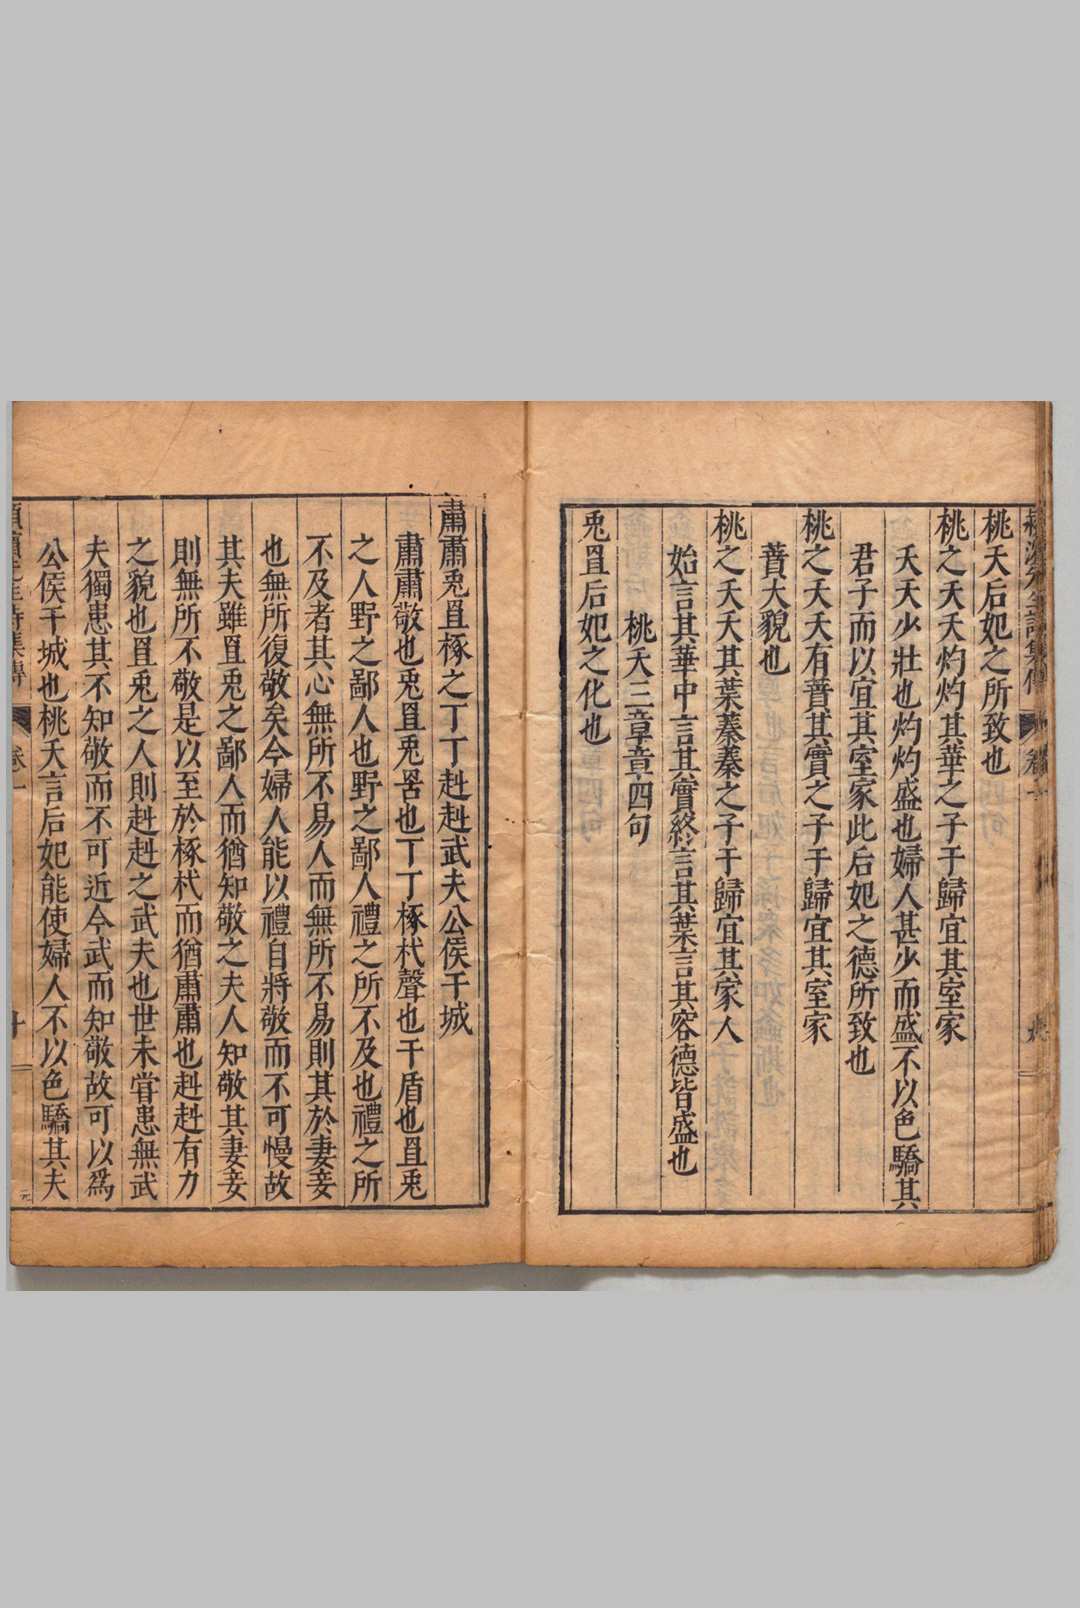 桃夭后妃之所致也
桃之夭夭灼灼其華之子于歸宜其室家
夭夭少壯也灼灼盛也婦人甚少而盛不以色驕其
君子而以宜其室家此后妃之德所致也
桃之夭夭有蕡其實之子于歸宜其室家
蕡大貌也
桃之夭夭其葉蓁蓁之子于歸宜其家人
始言其華中言其實終言其葉言其容德皆盛也
桃夭三章章四句
兎罝后妃之化也
肅肅兎罝椓之丁丁赳赳武夫公侯干城
肅肅敬也兎罝兎罟也丁丁椓杙聲也干盾也罝兎
之人野之鄙人也野之鄙人禮之所不及也禮之所
不及者其心無所不易人而無所不易則其於妻妾
也無所復敬矣今婦人能以禮自將敬而不可慢故
其夫雖罝兎之鄙人而猶知敬之夫人知敬其妻妾
則無所不敬是以至於椓杙而猶肅肅也赳赳有力
之貌也罝兎之人則赳赳之武夫也世未甞患無武
夫獨患其不知敬而不可近今武而知敬故可以爲
公侯干城也桃夭言后妃能使婦人不以色驕其夫
卷一 十